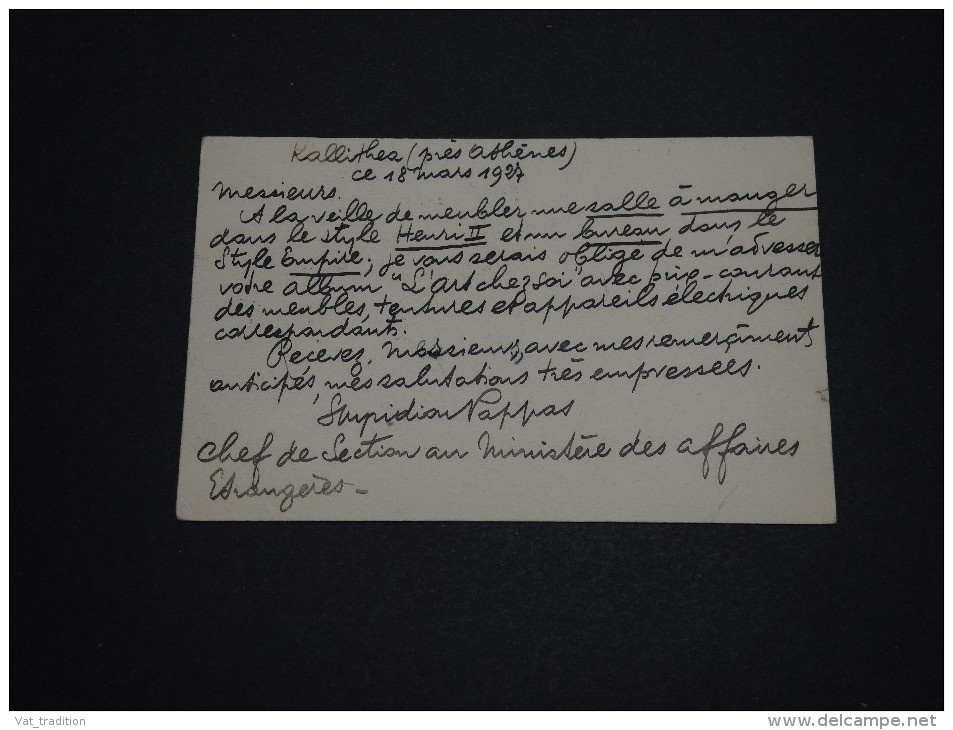 Kallithea (près Athènes)
ce 18 mars 1927
Messieurs.
A la veille de meubler, une salle à manger
dans le style Henri II et un bureau dans le
Style Empire; je vous serais obligé de m'adresser
votre album "L'art chez soi" avec prix-courant
des meubles, tentures et appareils électriques
correspondants.
Recevez, Messieurs, avec mes remerçîments
anticipés, mes salutations très empressées.
Pappas
Chef de Section au Ministère des affaires
Etrangères -
Vat_tradition
www.delcampe.net